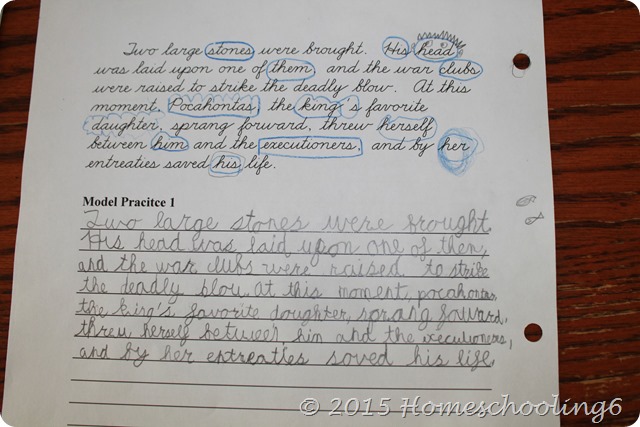 Two large stones were brought. His head
was laid upon one of them, and the war clubs
were raised to strike the deadly blow. At this
moment, Pocahontas, the king's favorite
daughter, sprang forward, threw herself
between him and the executioners, and by her
entreaties saved his life.
Model Pracitce 1
Two large stones were brought.
His head was laid upon one of them,
and the war clubs were raised to strike
the deadly blow. At this moment, pocahontas,
the king's favorite daughter, sprang foward,
threw herself between him and the executioners,
and by her entreaties saved his life.
© 2015 Homeschooling6